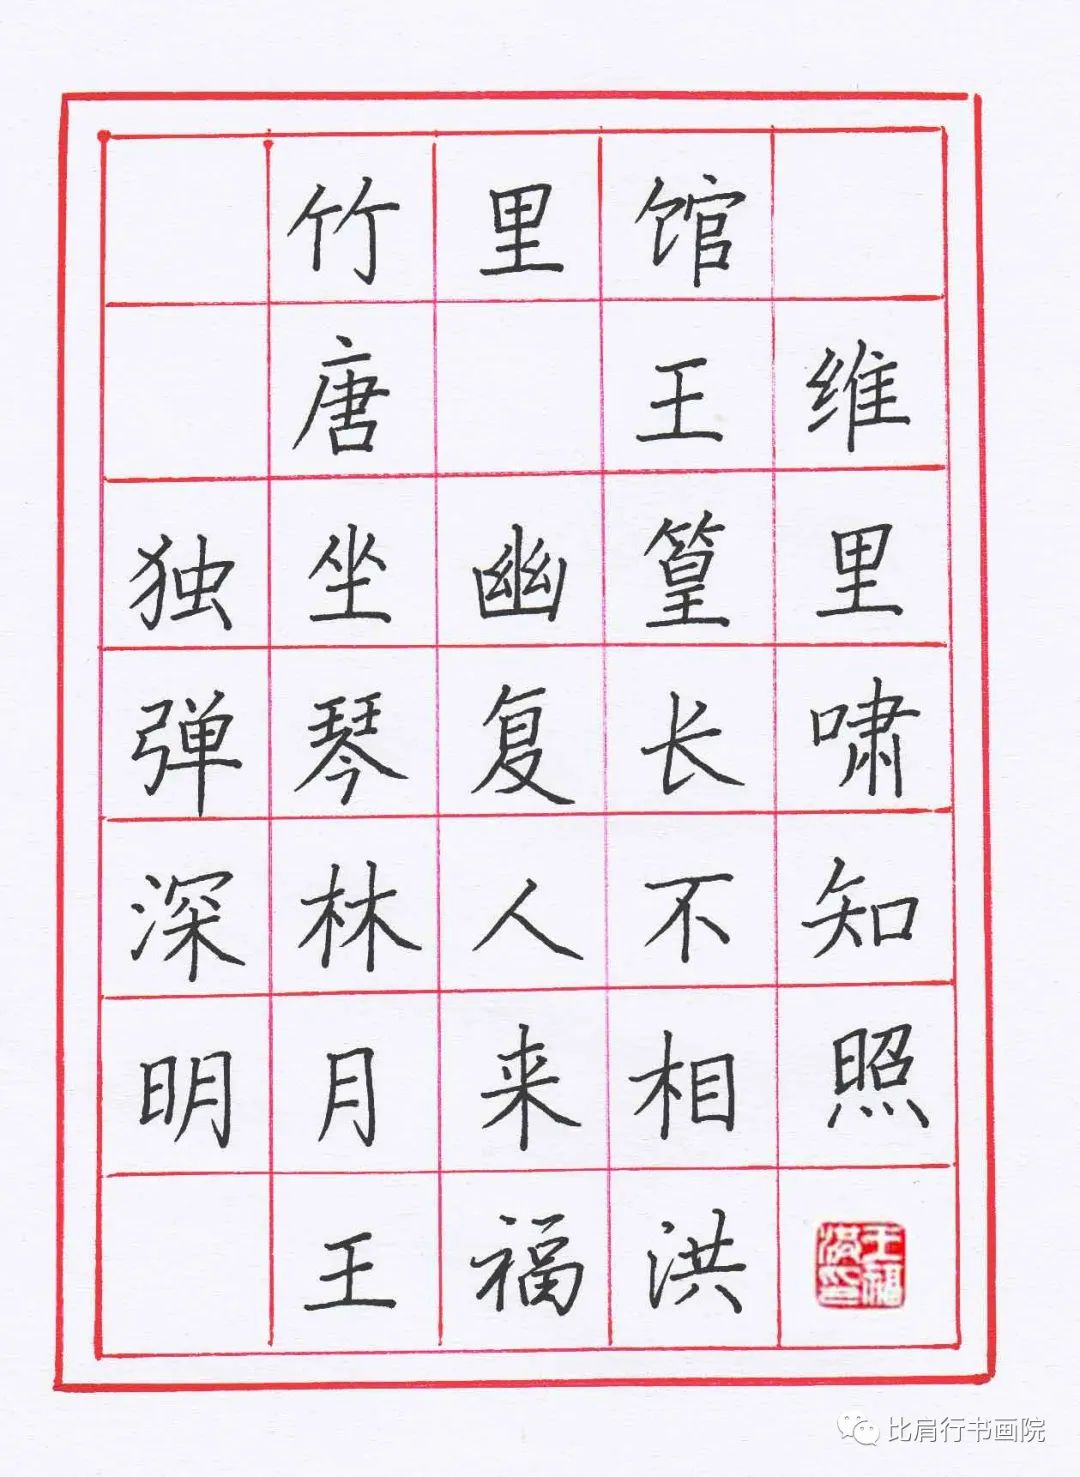 竹里馆
唐 王维
独坐幽篁里
弹琴复长啸
深林人不知
明月来相照
王福洪
王福洪印
比肩行书画院